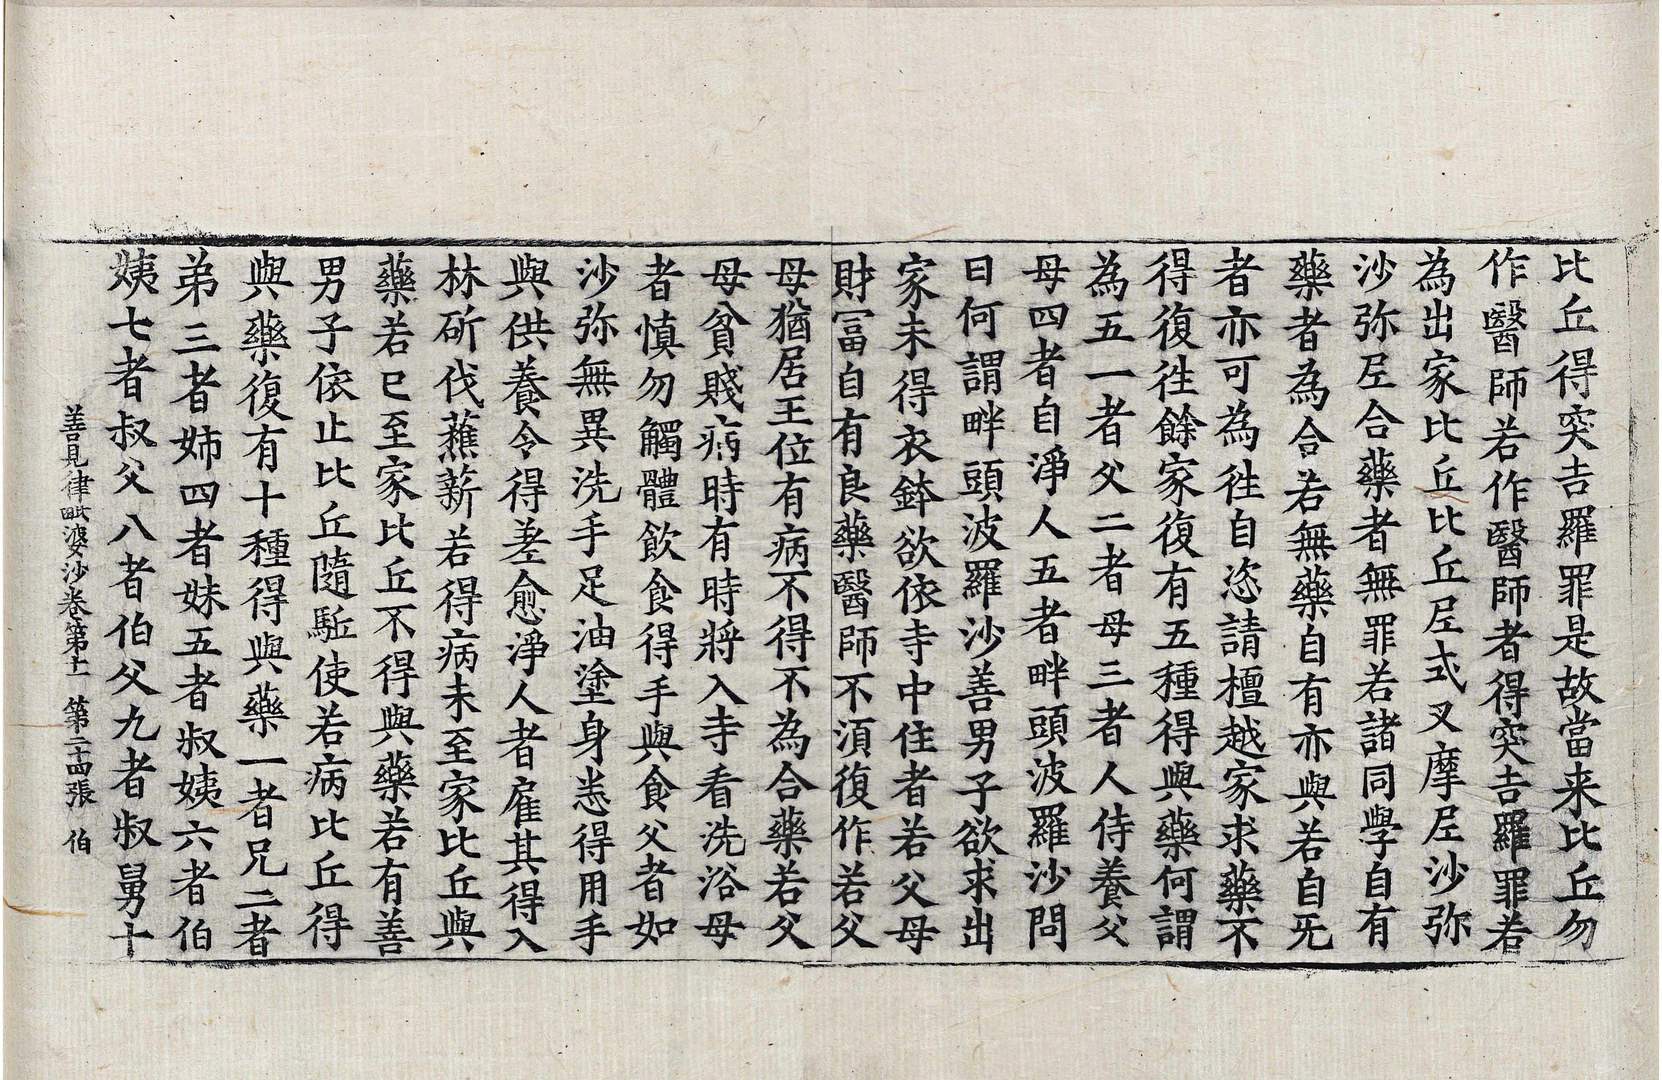 比丘得突吉羅罪是故當来比丘勿
作醫師若作醫師者得突吉羅罪若
為出家比丘比丘尼式叉摩尼沙弥
沙弥尼合藥者無罪若諸同學自有
藥者為合若無藥自有亦與若自无
者亦可為徃自恣請檀越家求藥不
得復徃餘家復有五種得與藥何謂
為五一者父二者母三者人侍養父
母四者自淨人五者畔頭波羅沙問
曰何謂畔頭波羅沙善男子欲求出
家未得衣鉢欲依寺中住者若父母
財冨自有良藥醫師不湏復作若父
母猶居王位有病不得不為合藥若父
母貧賤病時有時將入寺看洗浴母
者慎勿觸體飲食得手與食父者如
沙弥無異洗手足油塗身恙得用手
與供養令得差愈淨人者雇其得入
林斫伐蕉薪若得病未至家比丘與
藥若已至家比丘不得與藥若有善
男子依止比丘隨駈使若病比丘得
與藥復有十種得與藥一者兄二者
弟三者姉四者妹五者叔姨六者伯
姨七者叔父八者伯父九者叔舅十
善見律毗婆沙卷第十一 第二十四張 伯